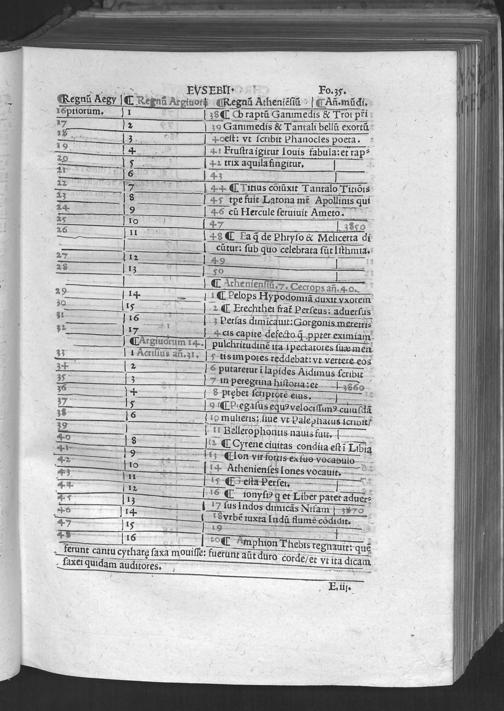 EVSEBII· Fo.35.
Regnū Aegy ¶ Regnū Argiuorū ¶ Regnū Atheniēsiū ¶ Añ.mūdi.
16 ptiorum. 1 38 ¶ Ob raptū Ganimedis & Troi pri
17 2 39 Ganimedis & Tantali bellū exortū
18 3 40 est: vt scribit Phanocles poeta.
19 4 41 Frustra igitur Iouis fabula: et rap⸗
20 5 42 trix aquila fingitur.
21 6 43
22 7 44 ¶ Titius coiuxit Tantalo Titiois
23 8 45 tpe fuit Latona mr̄ Apollinis qui
24 9 46 cū Hercule seruiuit Ameto.
25 10 47 3850
26 11 48 ¶ Ea q̄ de Phryso & Melicerta di
cūtur: sub quo celebrata sūt Isthmia.
27 12 49
28 13 50
¶ Atheniensiū.7. Cecrops añ.40.
29 14 1 ¶ Pelops Hypodomiā duxit vxorem
30 15 2 ¶ Erechthei fraf Perseus: aduersus
31 16 3 Persas dimicauit: Gorgonis meretri
32 17 4 cis capite desecto q̄ ppter eximiam
¶ Argiuorum 14. pulchritudinē ita spectatores suæ men
33 1 Acrisius añ.31. 5 tis impotes reddebat: vt vertere eos
34 2 6 putaretur i lapides Aidimus scribit
35 3 7 in peregrina historia: et 3860
36 4 8 prębet scriptore eius.
37 5 9 ¶ Pegasus equ⁹ velocissim⁹ cuiusdā
38 6 10 mulieris: siue vt Palephatus scribit:
39 11 Bellerophontis nauis fuit.
40 8 12 ¶ Cyrene ciuitas condita est i Libia
41 9 13 ¶ Ion vir fortis ex suo vocabulo
42 10 14 Athenienses Iones vocauit.
43 11 15 ¶ Gesta Persei.
44 12 16 ¶ ionysi⁹ q et Liber pater aduer⸗
45 13 17 sus Indos dimicās Nisam 3870
46 14 18 vrbē iuxta Indū flumē cōdidit.
47 15 19
48 16 20 ¶ Amphion Thebis regnauit: quē
ferunt cantu cytharę saxa mouisse: fuerunt aūt duro corde/et vt ita dicam
saxei quidam auditores.
E.iij.